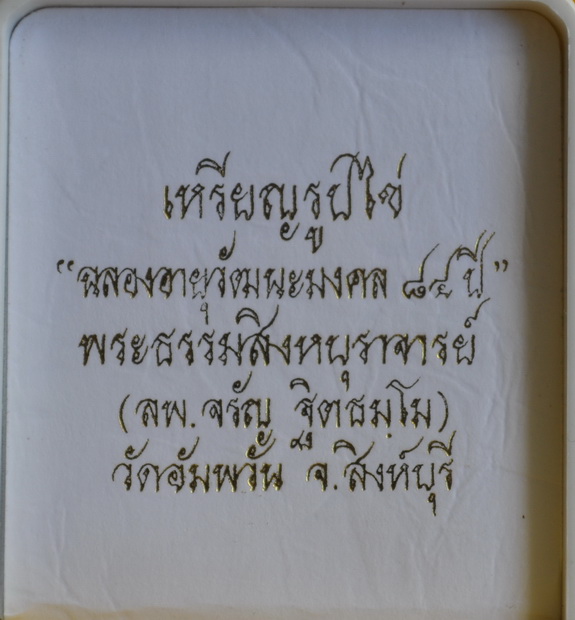 เหรียญรูปไข่
“ฉลองอายุวัฒนะมงคล ๘๔ ปี”
พระธรรมสิงหบุราจารย์
(ลพ.จรัญ ฐิตธมฺโม)
วัดอัมพวัน จ.สิงห์บุรี